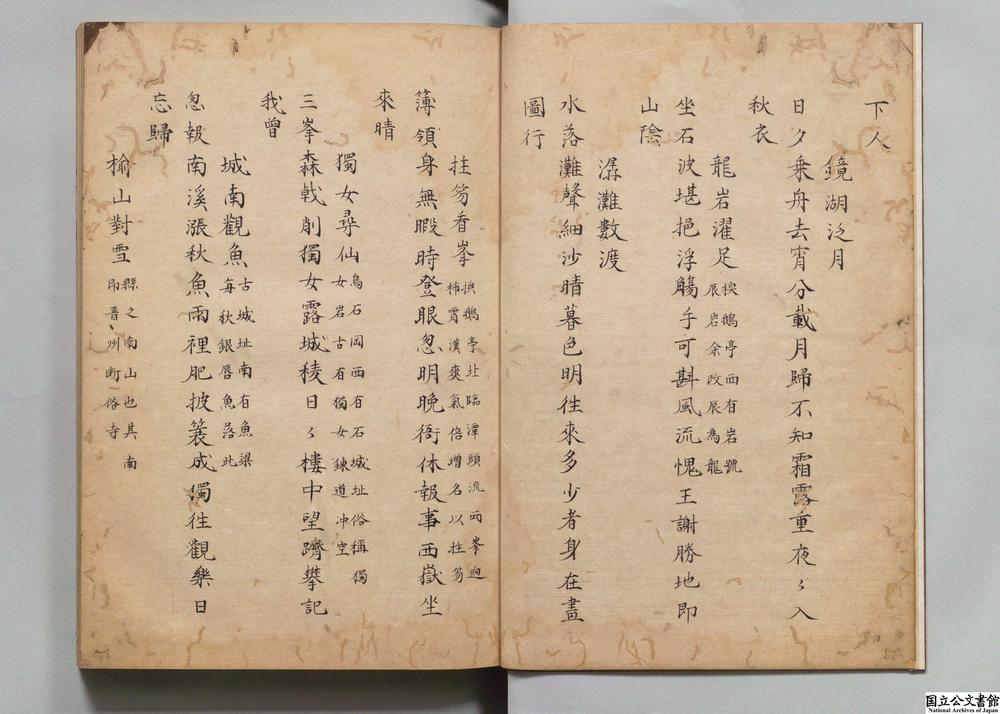 下人
鏡湖泛月
日夕乗舟去宵分載月歸不知霜露重夜〻入
秋衣
龍岩濯足 挨鵝亭西有岩號
辰岩余改辰為龍
坐石波堪挹浮觴手可斟風流愧王謝勝地即
山陰
潺灘數渡
水落灘聲細沙晴暮色明往來多少者身在畫
圖行
拄笏看峯 換鵝亭址臨潭頭流両峯迥
柿霄漢爽氣倍增名以拄笏
簿領身無暇時登眼忽明晚衙休報事西嶽坐
來晴
獨女尋仙 烏石岡西有石城址俗稱獨
女岩古有獨女錬道冲空
三峯森戟削獨女露城稜日〻樓中望躋攀記
我曾
城南觀魚 古城址南有魚梁
每秋銀唇魚落此
忽報南溪漲秋魚雨裡肥披簑成獨往觀樂日
忘歸
榆山對雪 縣之南山也其南
即晋州斷俗寺
国立公文書館
National Archives of Japan